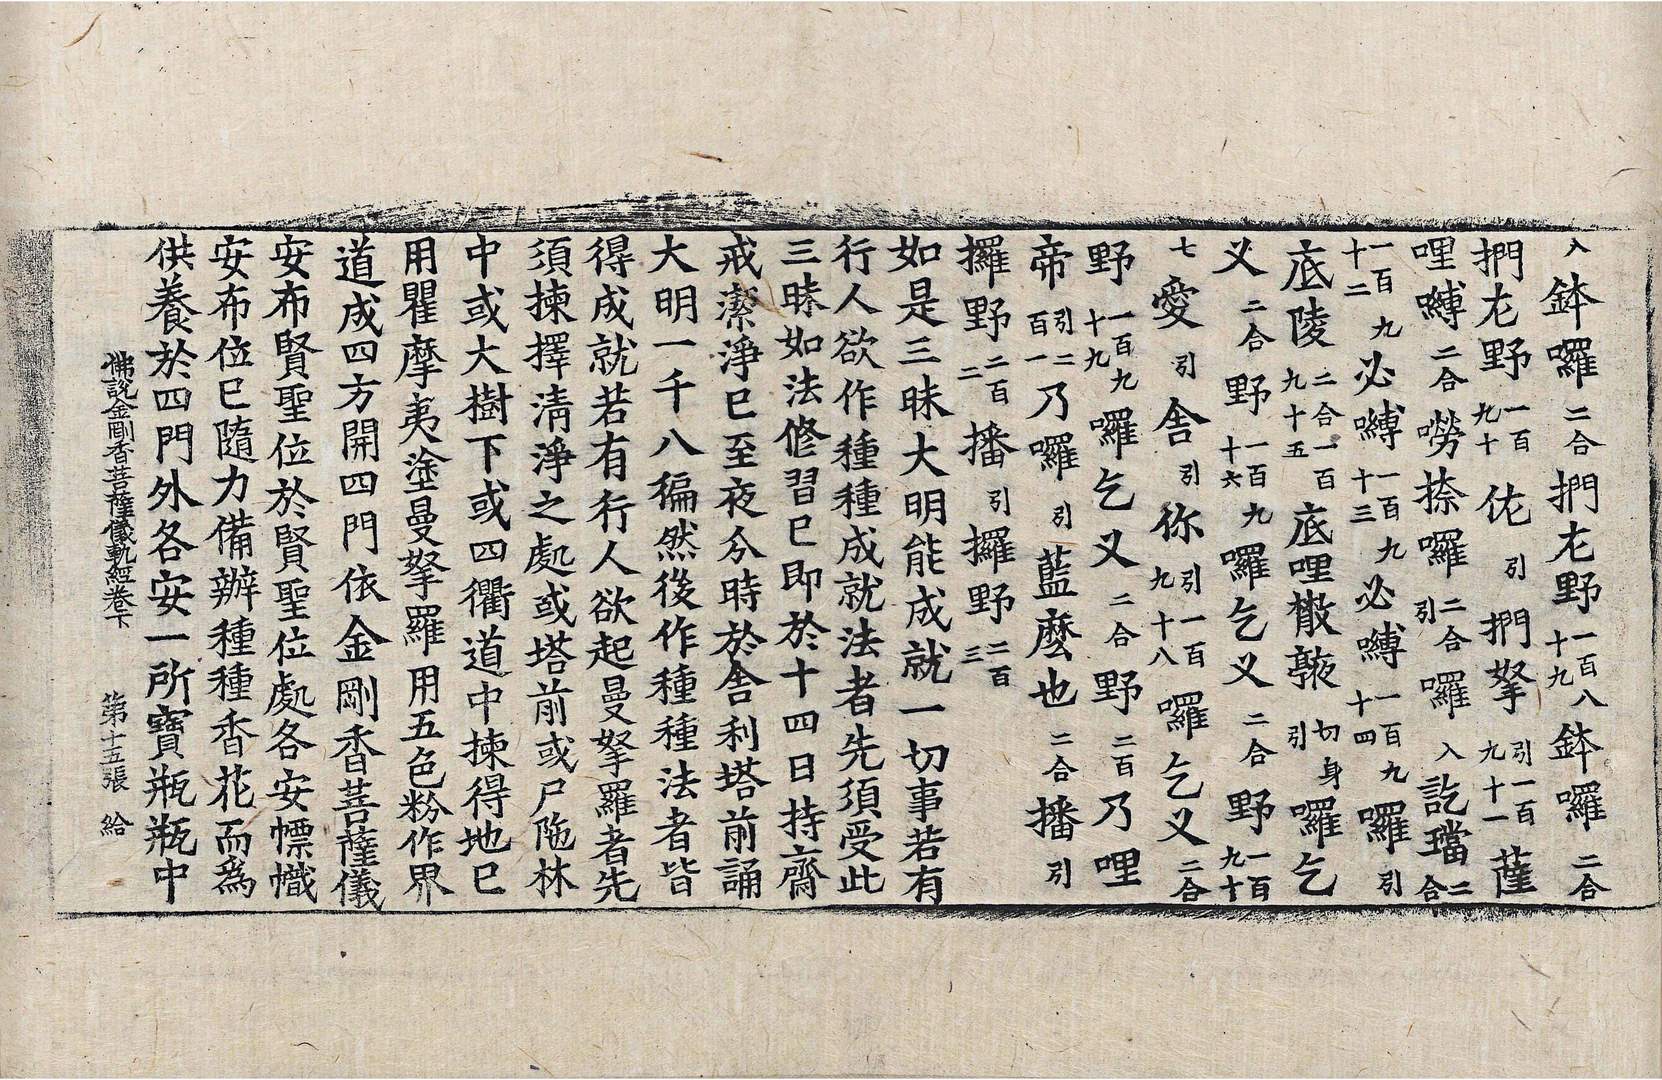 入鉢囉二合捫尢野一百八十九鉢囉二合
捫尢野一百九十佐引捫拏引一百九十一薩
哩嚩二合嘮捺囉二合引囉入訖璫二合
一百九十二必嚩一百九十三必嚩一百九十四囉引
底陵二合一百九十五底哩橵䫂切身引囉乞
叉二合野一百九十六囉乞叉二合野一百九十
七愛引舍引称引一百九十八囉乞叉二合
野一百九十九囉乞叉二合野二百乃哩
帝引二百一乃囉引藍麽也二合播引
攞野二百二播引攞野二百三
如是三昧大明能成就一切事若有
行人欲作種種成就法者先須受此
三昧如法修習已即於十四日持齋
戒潔淨已至夜分時於舎利塔前誦
大明一千八徧然後作種種法者皆
得成就若有行人欲起曼拏羅者先
須揀擇清淨之處或塔前或尸陁林
中或大樹下或四衢道中揀得地已
用瞿摩夷塗曼拏羅用五色粉作界
道成四方開四門依金剛香菩薩儀
安布賢聖位於賢聖位處各安幖幟
安布位已隨力備辦種種香花而為
供養於四門外各安一所寶瓶瓶中
佛說金剛香菩薩儀軌經卷下 第十五張 給